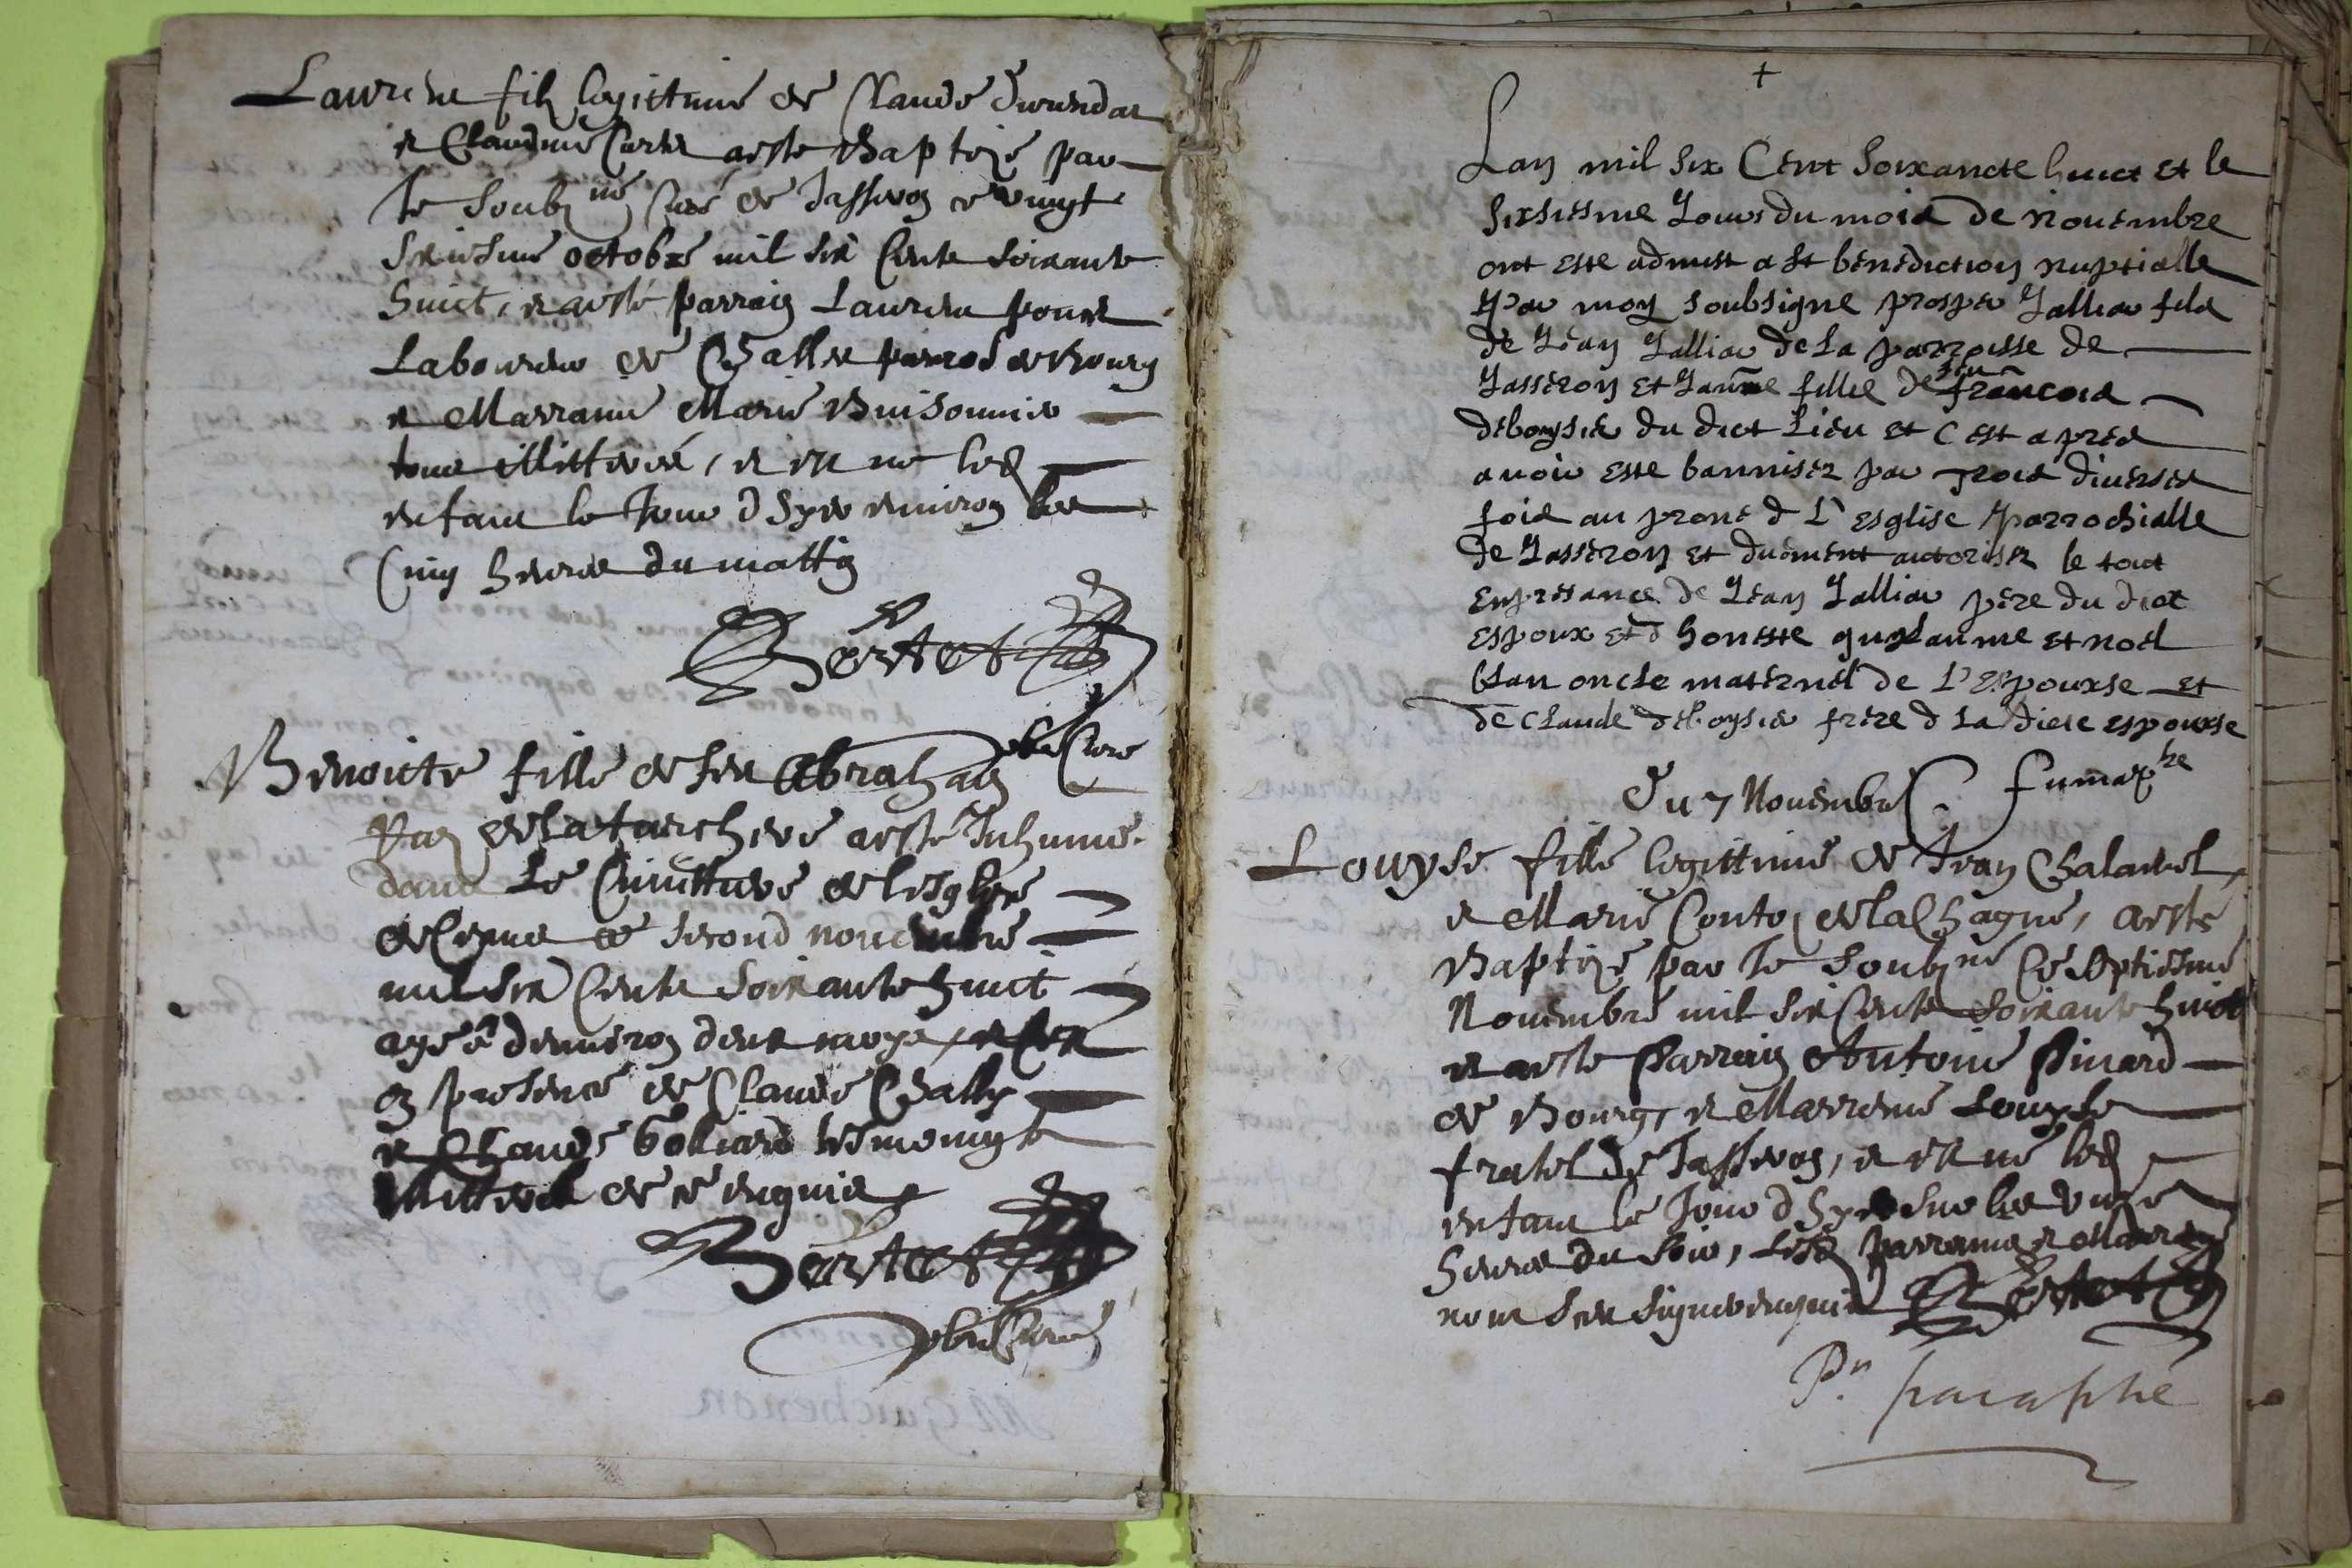 Laurent filz legittime de Claude
et Claudine aesté Baptizé par
le soubz né Curé de Jasseron ce vingt
octobre mil six Cents soixante
huict, et aesté parrain Laurent
Laboureur de Challe de Bourg
et Marrainne Marie Buisonnier
tous illitterez, et est né led
enfant le Jour d hyer environ les
Cinq heures du mattin
Bertet
pbre Curé
Benoicte fille de feu Abrahan
aesté Inhumé
dans Le Cimittiere de lesglise
ce second novembre
mil six Cents soixante huict
agée d'environ deux moys
en presence de Claude Chally
et Claude Goliard tesmoingts
illitterez de ce enquis
Bertet
pbre Curé
+
Lan mil six Cent soixancte huict et le
sixsiesme Jours du mois de novembre
ont esté admist a st bénédiction nuptialle
par moy soubsigne prosper Jallier fils
de Jéan Jallier de la parroisse de
Jasséron et Janne fillie de feu françois
déboysié du dict Liéu et c est aprés
avoir esté bannisez par trois diversés
fois au proné d L'esglise parrochialle
de Jasséron et duément autorisez le tout
en présance de Jéan Jallier pére du dict
espoux et d honeste guylaume et noël
oncle matérnél de L'Espouxse et
de claude déboysié frére d la dicte espouxse
fumex
Du 7 Novembre
Louyse fille legittime de Jean Chalandel
et Marie Contoz de la Chagne, aesté
Baptizé par le soubz né Ce septiesme
Novembre mil six Cents soixante huict
et aesté Parrain Antoine Pinard
de Bourg, et Marrenne Louyse
fratel de Jasseron, et est né led
enfant le Jour d hyer sur les unze
heures du soir, lesd parrains et Marrennes
nont sceu signer enquis Bertet
Pn paraphé